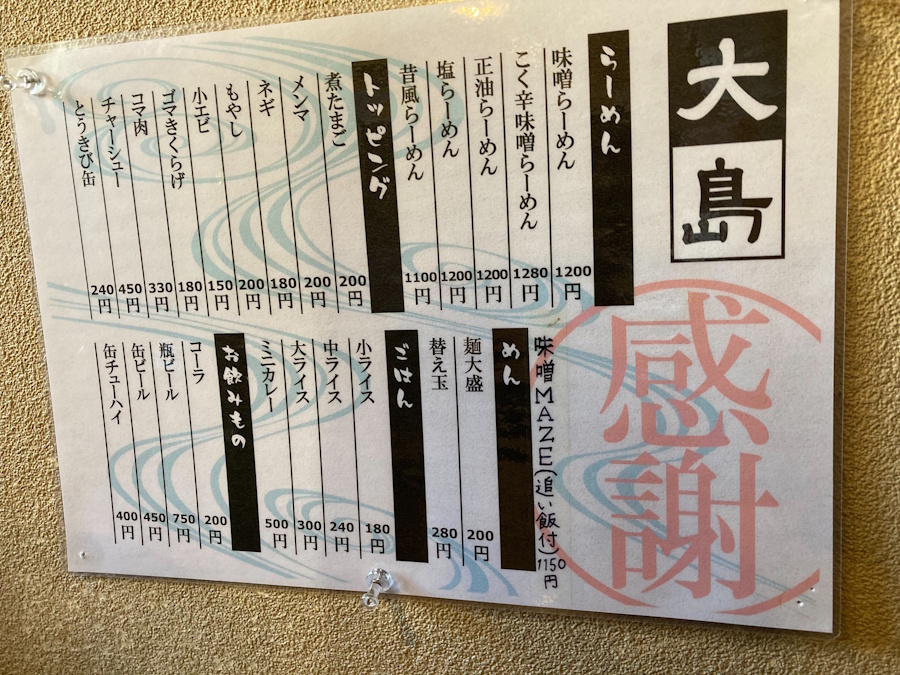 大島
感謝
らーめん
味噌らーめん 1200円
こく辛味噌らーめん 1280円
正油らーめん 1200円
塩らーめん 1200円
昔風らーめん 1100円
トッピング
煮たまご 200円
メンマ 200円
ネギ 180円
もやし 200円
小エビ 150円
ゴマきくらげ 180円
コマ肉 330円
チャーシュー 450円
とうきび缶 240円
味噌MAZE(追い飯付)1150円
めん
麺大盛 200円
替え玉 280円
ごはん
小ライス 180円
中ライス 240円
大ライス 300円
ミニカレー 500円
お飲みもの
コーラ 200円
瓶ビール 750円
缶ビール 450円
缶チューハイ 400円